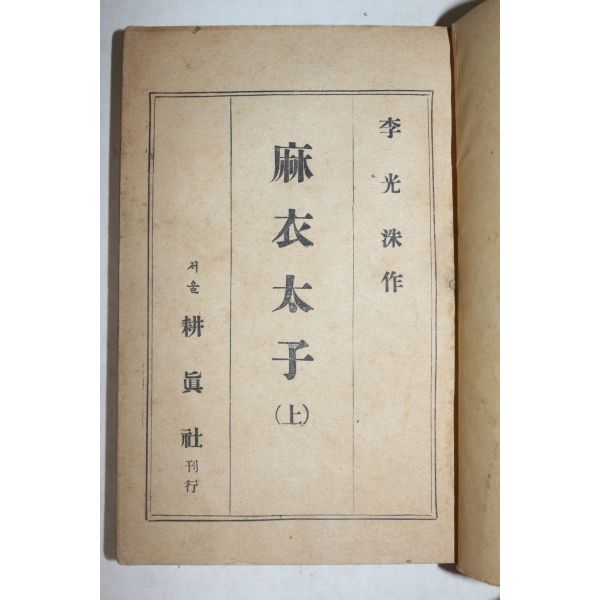 李光洙作
麻衣太子(上)
서울 耕眞社刊行